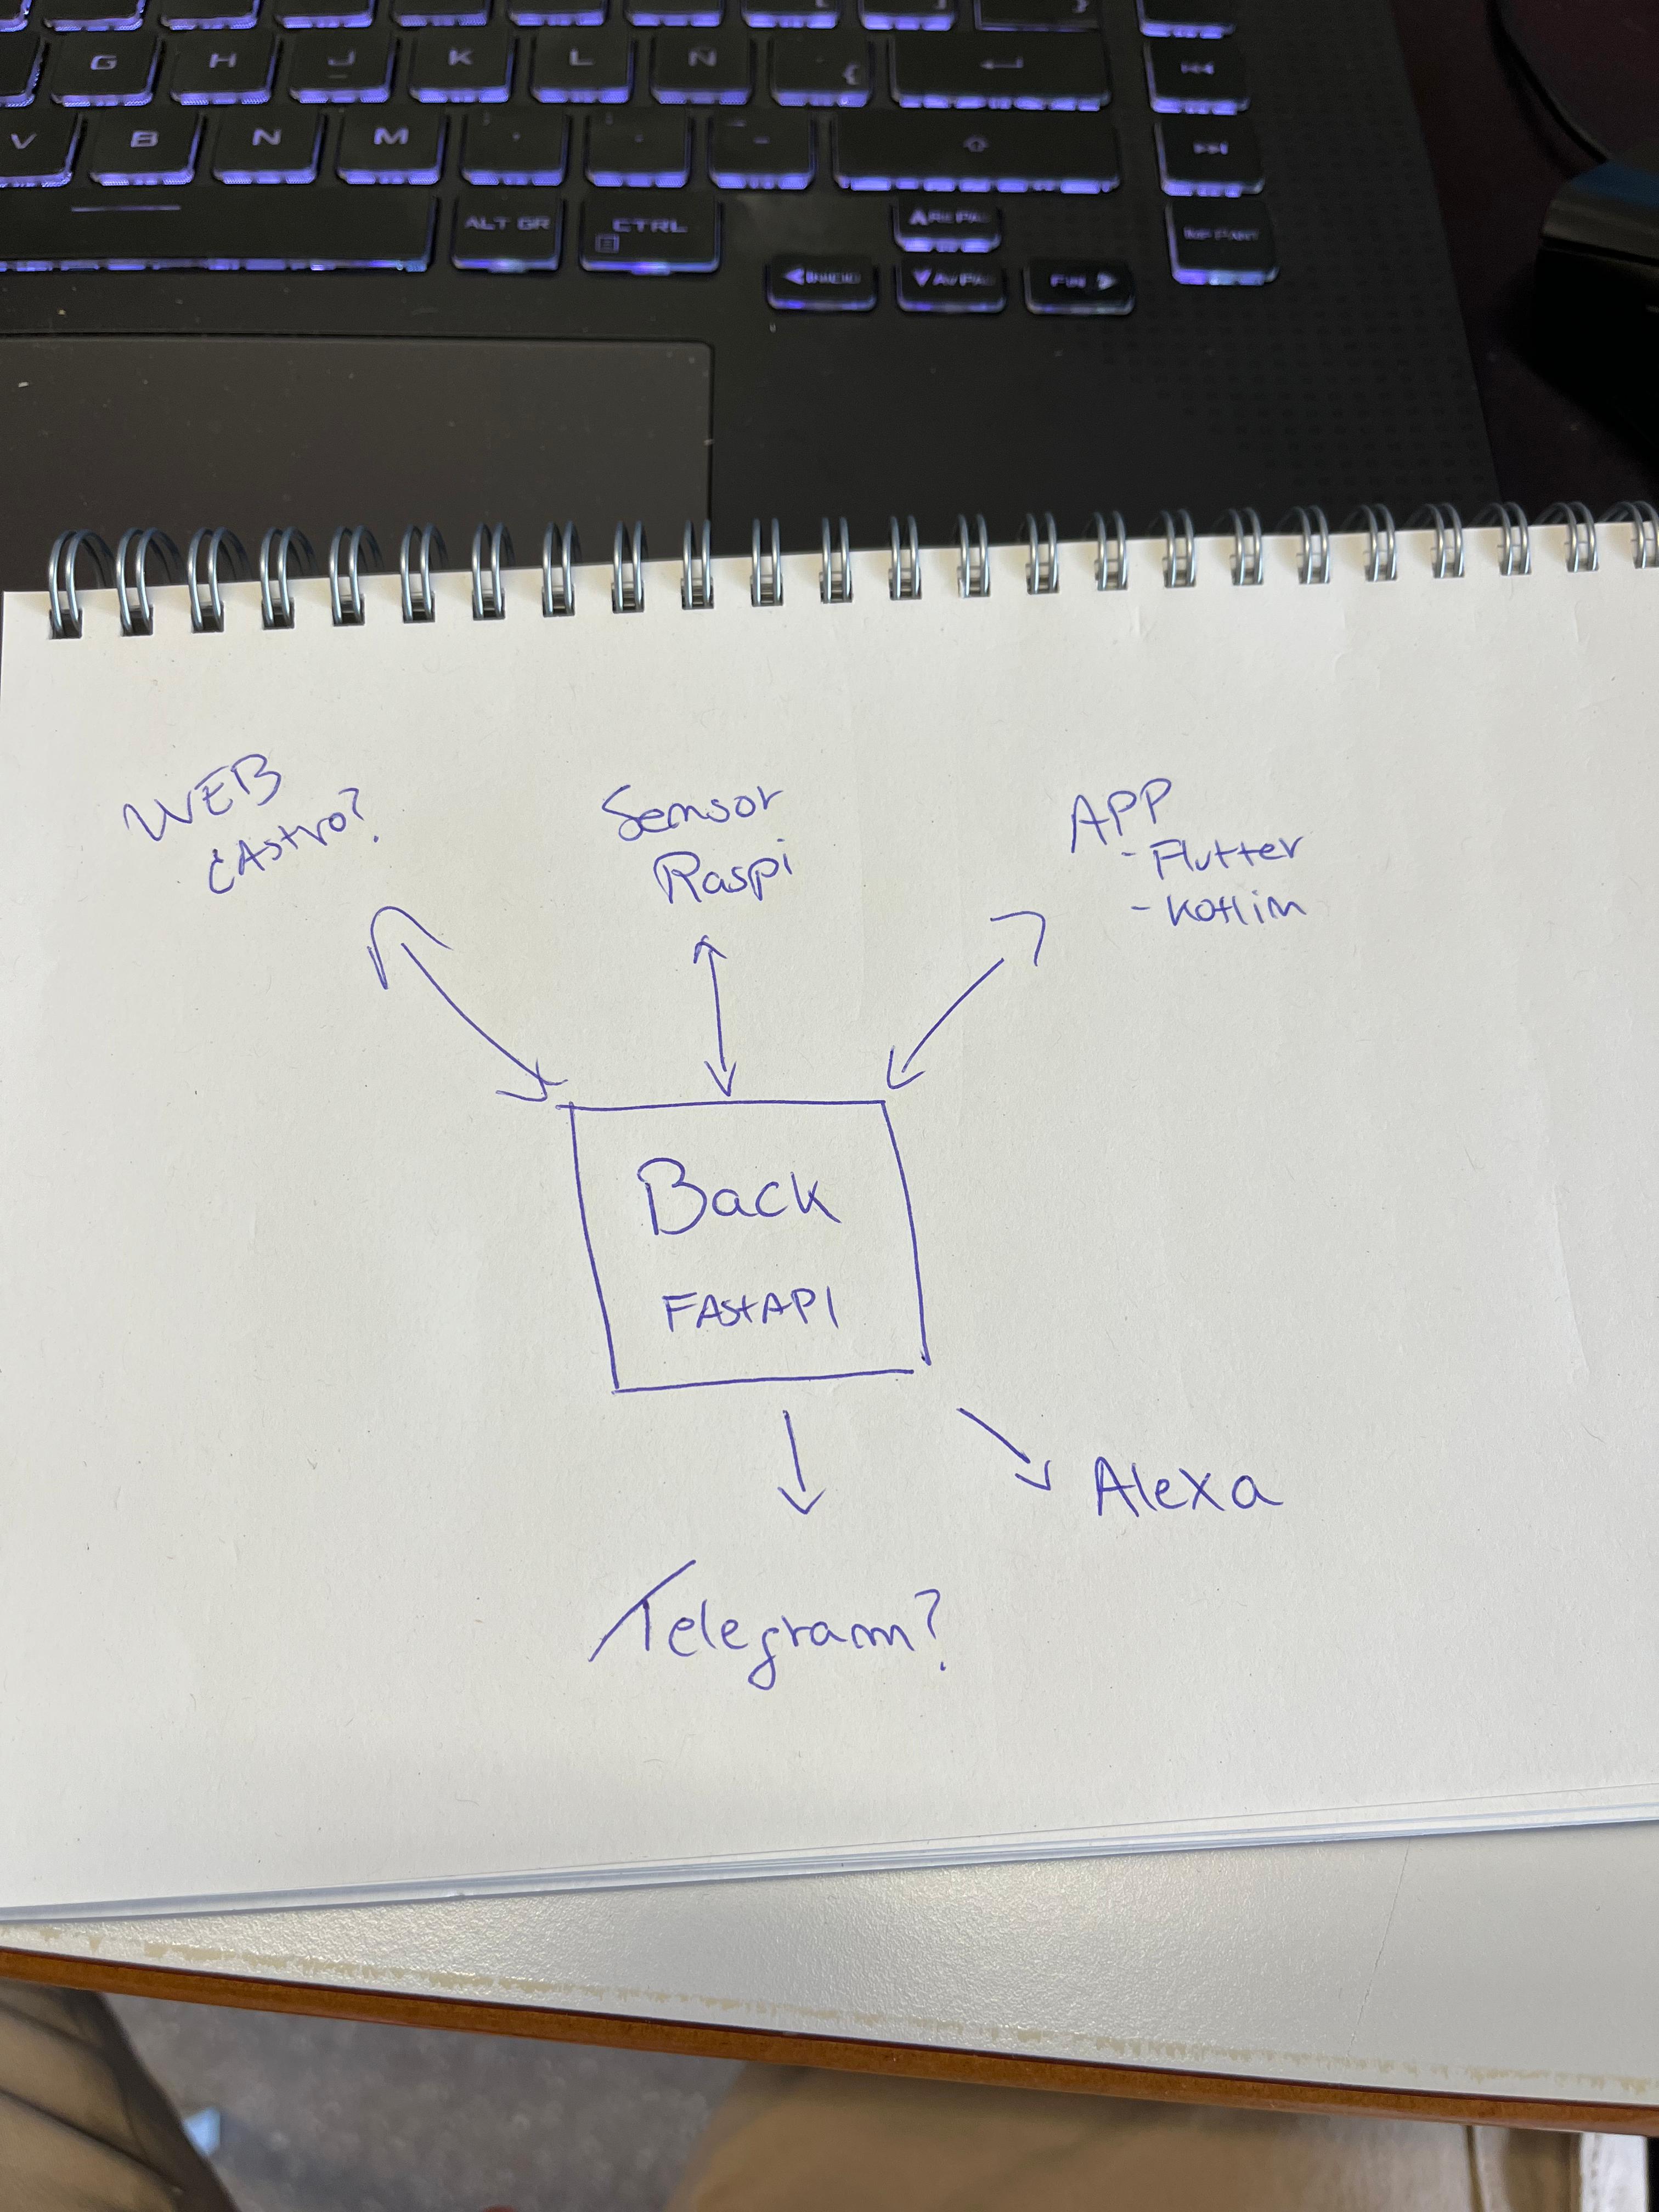 G H J K L Ñ {
V B N M -
ALT GR CTRL
INICIO AV PÁG FIN
WEB
¿Astro?
Sensor
Raspi
APP
- Flutter
- Kotlin
Back
FAStAPI
Alexa
Telegram?